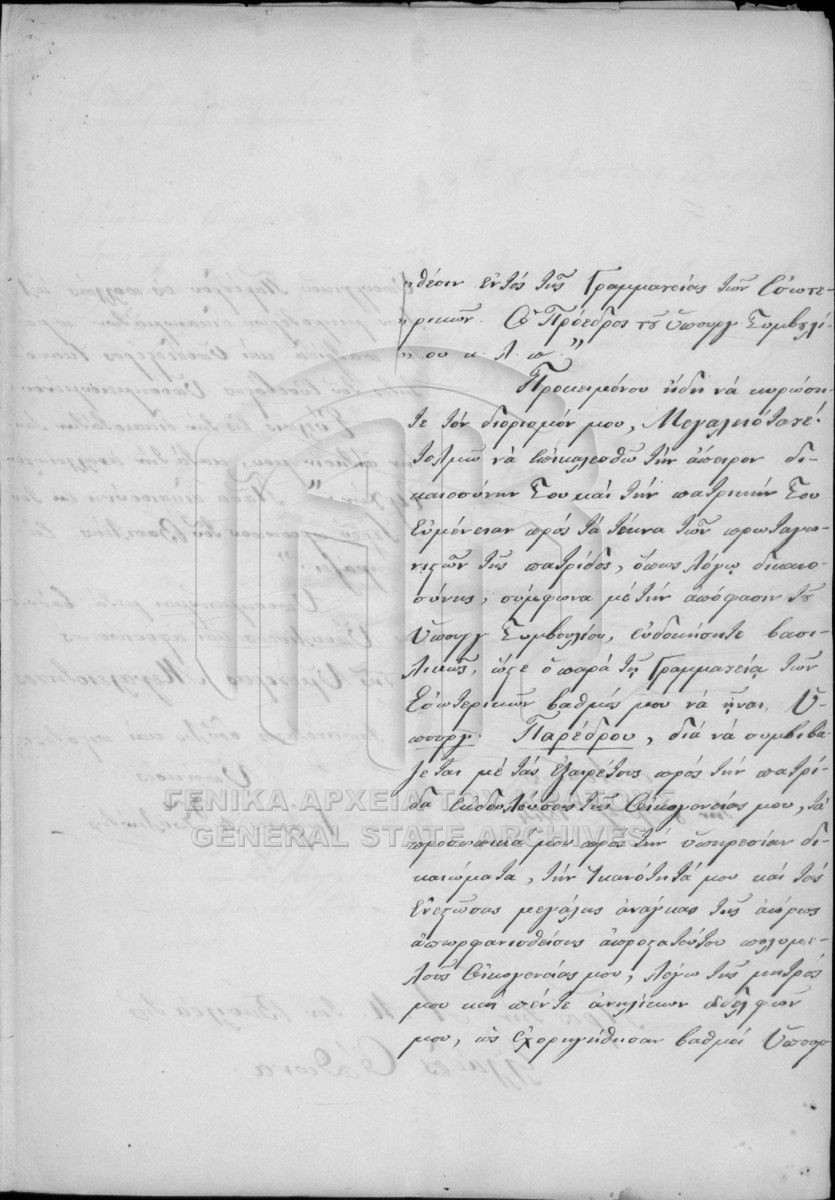 "θέσιν ἐντὸς τῆς Γραμματείας τῶν Ἐσωτε-
"ρικῶν. Ὁ Πρόεδρος τοῦ Ὑπουργ Συμβουλί-
"ου κ. λ. π."
Προκειμένου ἤδη νὰ κυρώση-
τε τὸν διορισμόν μου, Μεγαλειότατε!
τολμῶ νὰ ἐπικαλεσθῶ τὴν ἄπειρον δι-
καιοσύνην Σου καὶ τὴν πατρικήν Σου
εὐμένειαν πρὸς τὰ τέκνα τῶν πρωταγω-
νιστῶν τῆς πατρίδος, ὅπως λόγῳ δικαιο-
σύνης, σύμφωνα μὲ τὴν ἀπόφασιν τοῦ
Ὑπουργ Συμβουλίου, εὐδοκήσητε βασι-
λικῶς, ὥστε ὁ παρὰ τῇ Γραμματείᾳ τῶν
Ἐσωτερικῶν βαθμός μου νὰ ἦναι Ὑ-
πουργ. Παρέδρου, διὰ νὰ συμβιβά-
ζεται μὲ τὰς ἐξαιρέτους πρὸς τὴν πατρί-
δα ἐκδουλεύσεις τῆς οἰκογενείας μου, τὰ
προσωπικά μου πρὸς τὴν ὑπηρεσίαν δι-
καιώματα, τὴν ἱκανότητά μου καὶ τὰς
ἐνεστώσας μεγάλας ἀνάγκας τῆς ἀώρως
ἀπορφανισθείσης ἀπροστατεύτου πολυμε-
λοῦς οἰκογενείας μου, λόγω τῆς μητρός
μου καὶ πέντε ἀνηλίκων ἀδελφῶν
μου, ὡς ἐχορηγήθησαν βαθμοὶ Ὑπουρ
ΓΕΝΙΚΑ ΑΡΧΕΙΑ ΤΟΥ ΚΡΑΤΟΥΣ
GENERAL STATE ARCHIVES